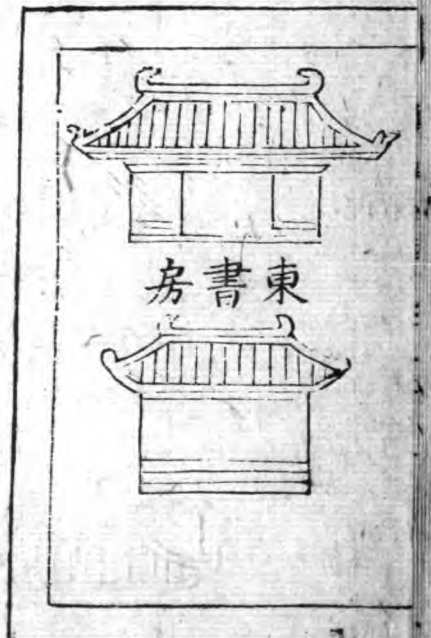 東書房